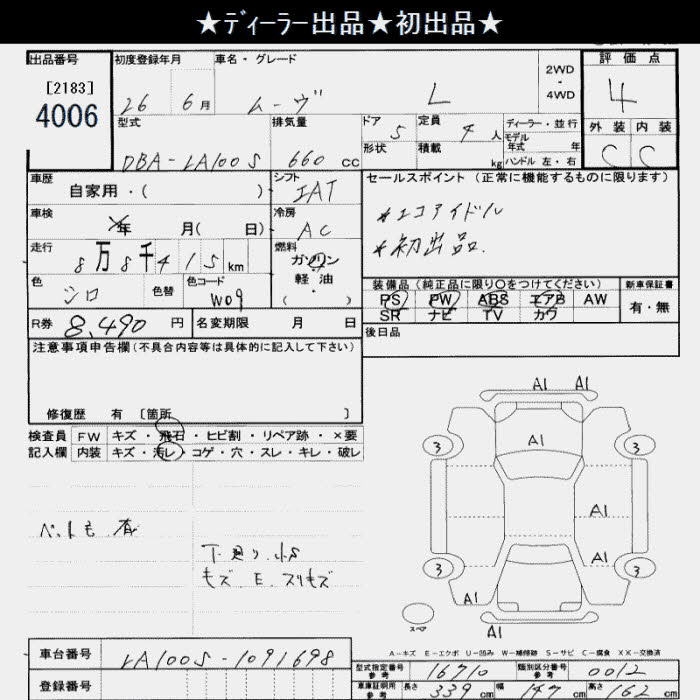 ★ディーラー出品★初出品★
出品番号 初度登録年月 車名・グレード 2WD・4WD 評価点
[2183] 4006 26 6月 ムーヴ L 4
型式 排気量 ドア 5 定員 4人 ディーラー・並行 外装 内装
モデル年式 年
DBA-LA100S 660 cc 形状 積載 kg ハンドル 左・右 C C
車歴 自家用・( ) シフト IAT セールスポイント (正常に機能するものに限ります)
車検 年 月( 日) 冷房 AC *エコアイドル
走行 8万8千415km 燃料 ガソリン *初出品.
軽油
( ・ )
色 シロ 色替 色コード W09
装備品 (純正品に限り○をつけてください) 新車保証書
PS PW ABS エアB AW 有・無
SR ナビ TV カワ
R券 8,490 円 名変期限 月 日 後日品
注意事項申告欄 (不具合内容等は具体的に記入して下さい)
修復歴 有 〔箇所 〕
検査員 FW キズ・飛石・ヒビ割・リペア跡・×要
記入欄 内装 キズ・汚レ・コゲ・穴・スレ・キレ・破レ
ペット毛 有
下廻り小S
モズ E スリキズ
A1 A1
3 A1 3
A1
3 A1 3
A1
A1
スペア
A-キズ E-エクボ U-凹み W-補修跡 S-サビ C-腐食 XX-交換済
車台番号 LA100S-1091698
登録番号
型式指定番号 参考 16710 類別区分番号 参考 0012
車庫証明用 参考 長さ 339 cm 幅 147 cm 高さ 162 cm